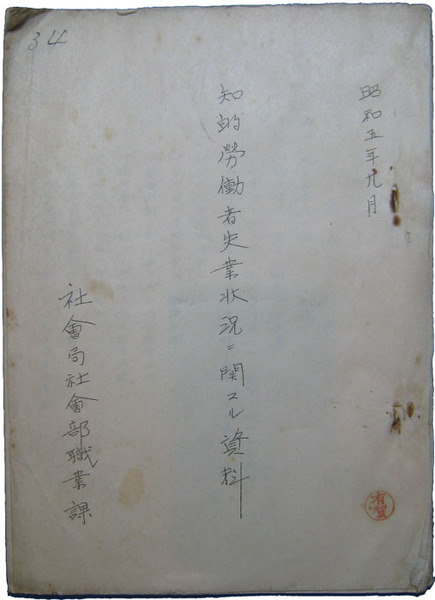 34
昭和五年九月
知的勞働者失業状況ニ関スル資料
社會局社會部職業課